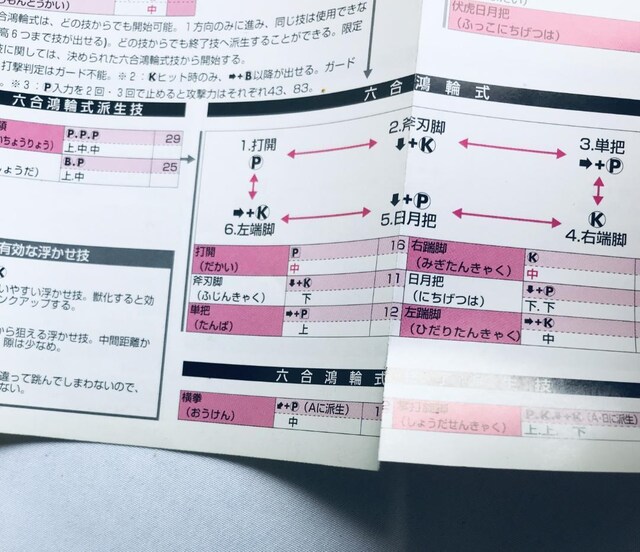 中
伏虎日月把
(ふっこにちげつは)
合鴻輪式は、どの技からでも開始可能。1方向のみに進み、同じ技は使用できな
高6つまで技が出せる)。どの技からでも終了技へ派生することができる。限定
技に関しては、決められた六合鴻輪式技から開始する。
打撃判定はガード不能。※2:Kヒット時のみ、➡+B以降が出せる。ガード
。※3:P入力を2回・3回で止めると攻撃力はそれぞれ43、83。
六合鴻輪式派生技
P.P.P 29
上.中.中
B.P 25
上.中
六合鴻輪式
1.打開
P
2.斧刃脚
⬇+K
3.単把
➡+P
K
4.右端脚
⬇+P
5.日月把
➡+K
6.左端脚
打開 P 16
(だかい) 中
斧刃脚 ⬇+K 11
(ふじんきゃく) 下
単把 ➡+P 12
(たんば) 上
右端脚 K
(みぎたんきゃく) 中
日月把 ⬇+P
(にちげつは) 下.下
左端脚 ➡+K
(ひだりたんきゃく) 中
有効な浮かせ技
K
いやすい浮かせ技。獣化すると効
ンクアップする。
から狙える浮かせ技。中間距離か
隙は少なめ。
違って跳んでしまわないので、
ない。
六合鴻輪式
横拳 +P(Aに派生) 1
(おうけん) 中
技
P.K.➡+K(A・Bに派生)
(しょうだせんきゃく) 上.上.下